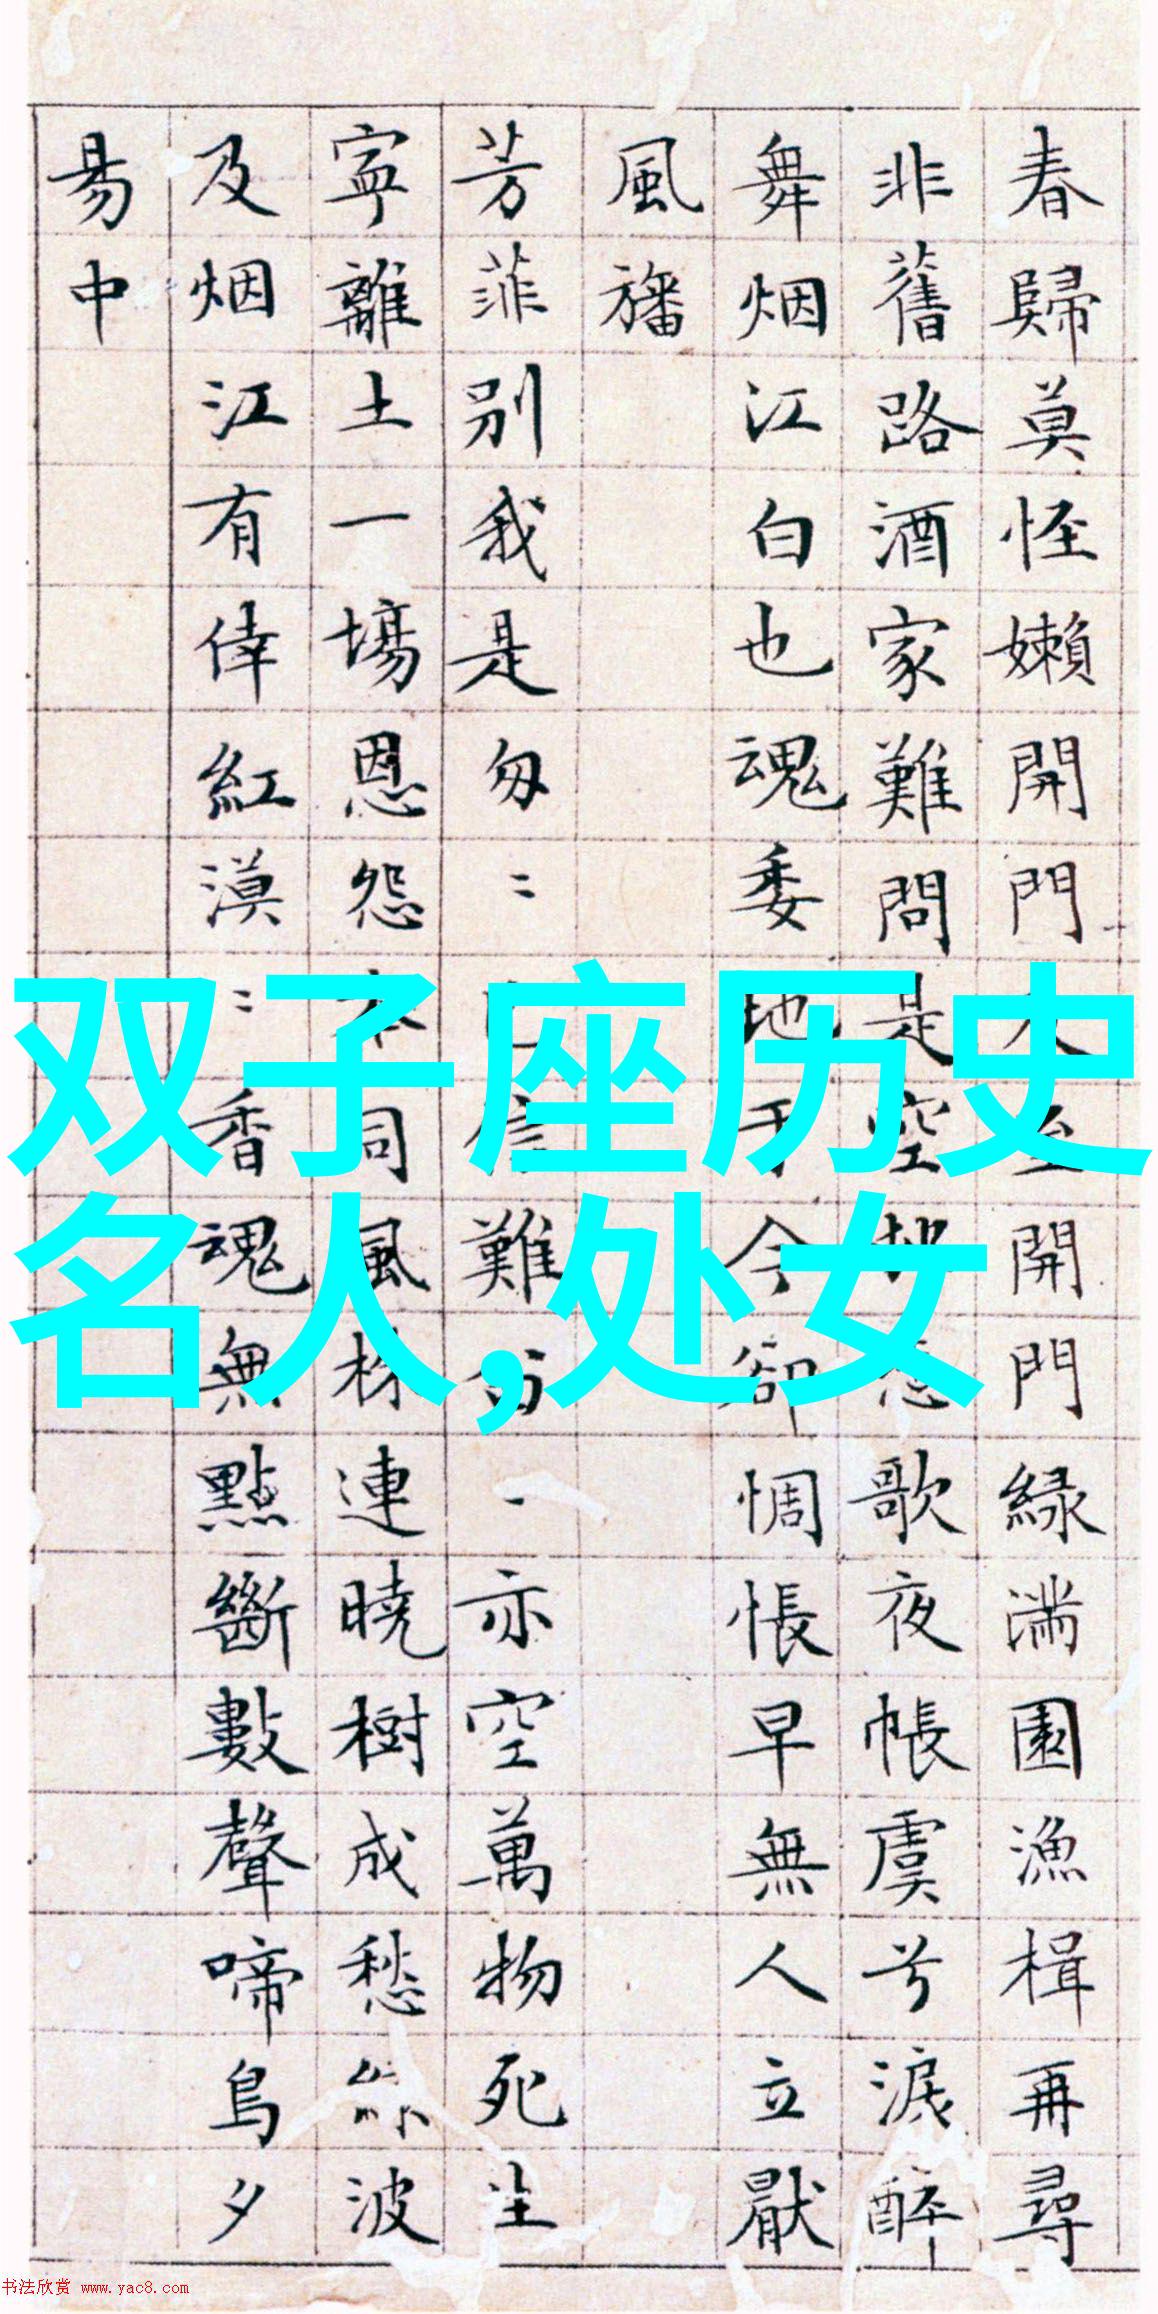 春歸莫怪嬾開門
開門緑滿園漁楫再尋
非舊路酒家難問是空
歌夜帳虞兮淚醉
舞烟江白也魂委地于今卻惆悵早無人立厭
風旛
芳菲別我是匆〻
難
一亦空萬物死生
寧離土一場恩怨本同風
連曉樹成愁
波
及烟江有倖紅漠〻香魂無點斷數聲啼鳥夕
易中
双子座历史
名人,处女
书法欣赏 www.yac8.com